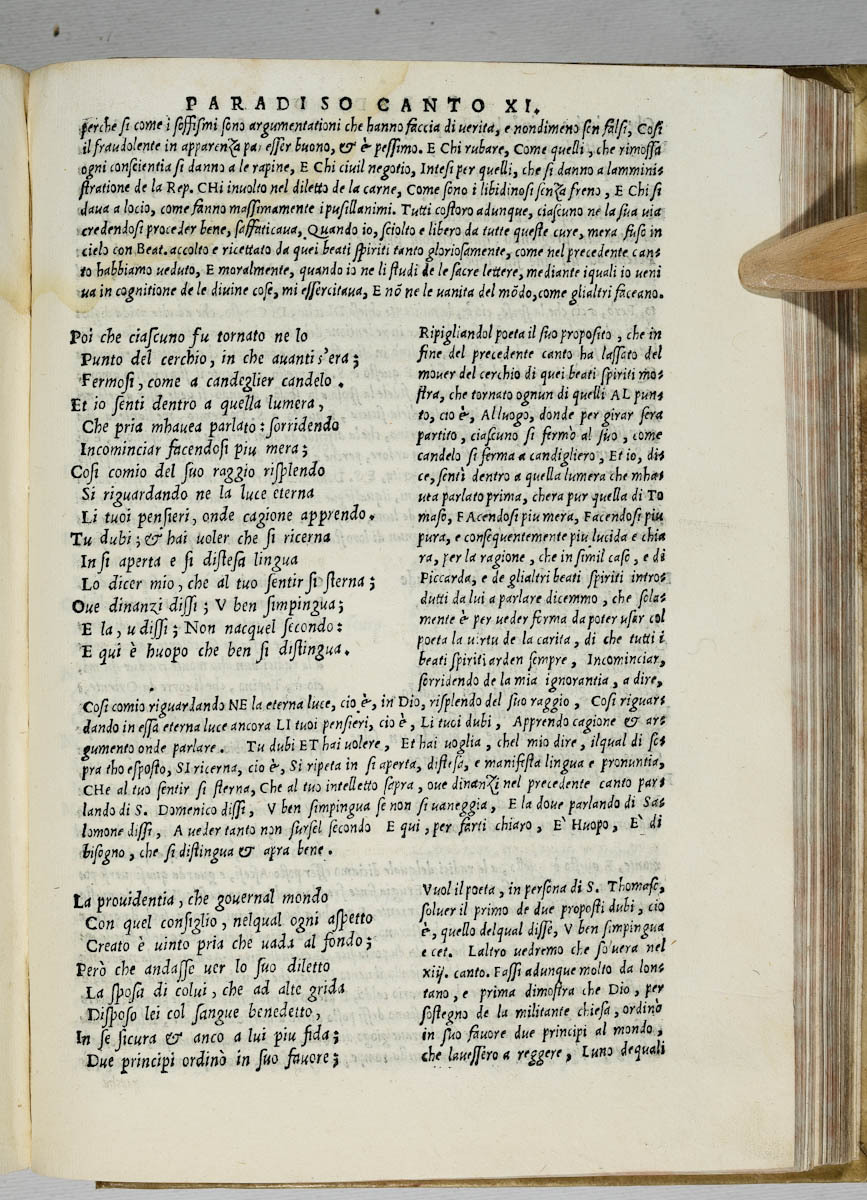 PARADISO CANTO XI.
perche si come i soffismi sono argumentationi che hanno faccia di uerita, e nondimeno sen falsi, Cosi
il fraudolente in apparenza par esser buono, & è pessimo. E Chi rubare, Come quelli, che rimossa
ogni conscientia si danno a le rapine, E Chi ciuil negotio, Intesi per quelli, che si danno a lamminis
stratione de la Rep. CHi inuolto nel diletto de la carne, Come sono i libidinosi senza freno, E Chi si
daua a locio, come fanno massimamente i pusillanimi. Tutti costoro adunque, ciascuno ne la sua uia
credendosi proceder bene, saffaticaua, Quando io, sciolto e libero da tutte queste cure, mera suso in
cielo con Beat. accolto e ricettato da quei beati spiriti tanto gloriosamente, come nel precedente cans
to habbiamo ueduto, E moralmente, quando io ne li studi de le sacre lettere, mediante iquali io ueni
ua in cognitione de le diuine cose, mi essercitaua, E nõ ne le uanita del mõdo, come glialtri faceano.
Poi che ciascuno fu tornato ne lo
Punto del cerchio, in che auanti s'era;
Fermosi, come a candeglier candelo.
Et io senti dentro a quella lumera,
Che pria mhauea parlato: sorridendo
Incominciar facendosi piu mera;
Cosi comio del suo raggio risplendo
Si riguardando ne la luce eterna
Li tuoi pensieri, onde cagione apprendo.
Tu dubi; & hai uoler che si ricerna
In si aperta e si distesa lingua
Lo dicer mio, che al tuo sentir si sterna;
Oue dinanzi dissi; V ben simpingua;
E la, u dissi; Non nacquel secondo:
E qui è huopo che ben si distingua.
Ripigliandol poeta il suo proposito, che in
fine del precedente canto ha lassato del
mouer del cerchio di quei beati spiriti mos
stra, che tornato ognun di quelli AL puns
to, cio è, Al luogo, donde per girar sera
partito, ciascuno si fermò al suo, come
candelo si ferma a candigliero, Et io, dis
ce, senti dentro a quella lumera che mhas
uea parlato prima, chera pur quella di To
maso, FAcendosi piu mera, Facendosi piu
pura, e consequentemente piu lucida e chia
ra, per la ragione, che in simil caso, e di
Piccarda, e de glialtri beati spiriti intros
dutti da lui a parlare dicemmo, che solas
mente è per ueder forma da poter usar col
poeta la uirtu de la carita, di che tutti i
beati spiriti arden sempre, Incominciar,
sorridendo de la mia ignorantia, a dire,
Cosi comio riguardando NE la eterna luce, cio è, in Dio, risplendo del suo raggio, Cosi riguars
dando in essa eterna luce ancora LI tuoi pensieri, cio è, Li tuoi dubi, Apprendo cagione & ars
gumento onde parlare. Tu dubi ET hai uolere, Et hai uoglia, chel mio dire, ilqual di sos
pra tho esposto, SI ricerna, cio è, Si ripeta in si aperta, distesa, e manifesta lingua e pronuntia,
CHe al tuo sentir si sterna, Che al tuo intelletto sapra, oue dinanzi nel precedente canto pars
lando di S. Domenico dissi, V ben simpingua se non si uaneggia, E la doue parlando di Sas
lomone dissi, A ueder tanto non sursel secondo E qui, per farti chiaro, E' Huopo, E' di
bisogno, che si distingua & apra bene.
La prouidentia, che gouernal mondo
Con quel consiglio, nelqual ogni aspetto
Creato è uinto pria che uada al fondo;
Però che andasse uer lo suo diletto
La sposa di colui, che ad alte grida
Disposo lei col sangue benedetto,
In se sicura & anco a lui piu fida;
Due principi ordinò in suo fauore;
Vuol il poeta, in persona di S. Thomaso,
soluer il primo de due proposti dubi, cio
è, quello delqual disse, V ben simpingua
e cet. Laltro uedremo che soluera nel
xiij. canto. Fassi adunque molto da lons
tano, e prima dimostra che Dio, per
sostegno de la militante chiesa, ordinò
in suo fauore due principi al mondo,
che lauessero a reggere, Luno dequali